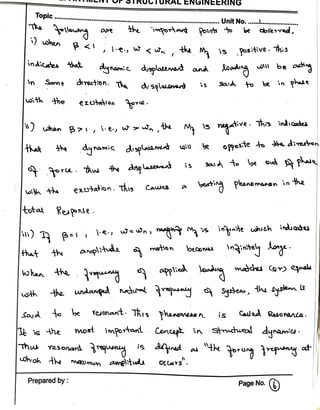 DEPARTMENT OF STRUCTURAL ENGINEERING
Topic Unit No.
The following are the important points to be observed,
i) when β < 1 , i.e., ω < ωn , the Mf is positive. This
indicates that dynamic displacement and loading will be acting
in Same direction. The displacement is said to be in phase
with the excitation force.
ii) when β > 1 , i.e., ω > ωn , the Mf is negative. This indicates
that the dynamic displacement will be opposite to the direction
of force. Thus the displacement is said to be out of phase
with the excitation. This Causes a beating phenomenon in the
total Response.
iii) If β = 1 , i.e., ω = ωn, Mf is infinite which indicates
that the amplitude of motion becomes infinitely large.
When the frequency of applied loading matches (or) equals
with the undamped natural frequency of system, the system is
Said to be resonant. This phenomenon is Called Resonance.
It is the most important Concept in Structural dynamics.
Thus resonant frequency is defined as "the forcing frequency at
which the maximum amplitude occurs".
Prepared by : Page No. 6